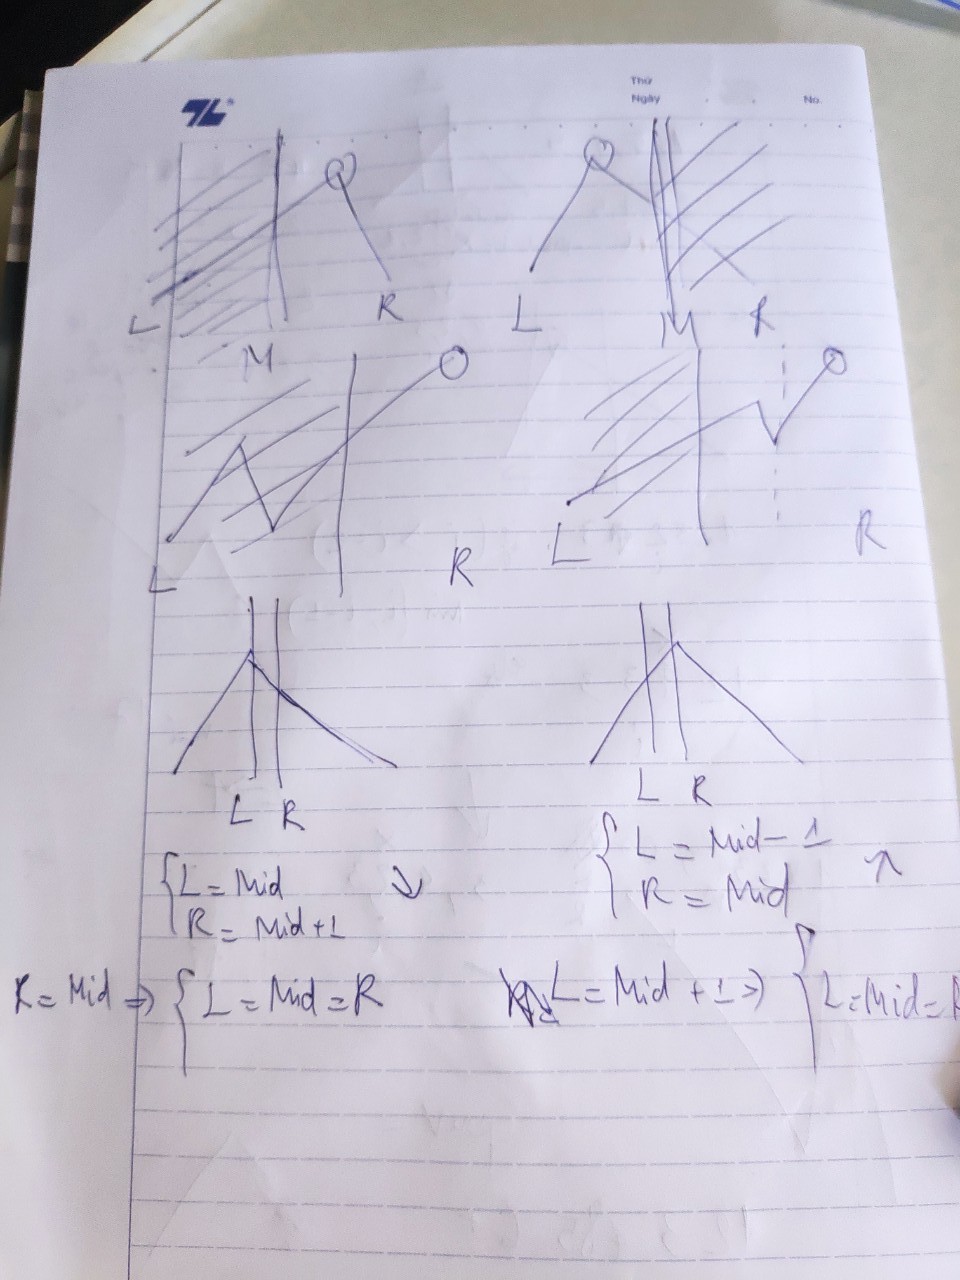 Thứ
Ngày No.
L M R L M R
L R L R
L R L R
L = Mid ↘ L = Mid - 1 ↗
R = Mid + 1 R = Mid
R = Mid ⇒ { L = Mid = R L = Mid + 1 ⇒ { L = Mid = R